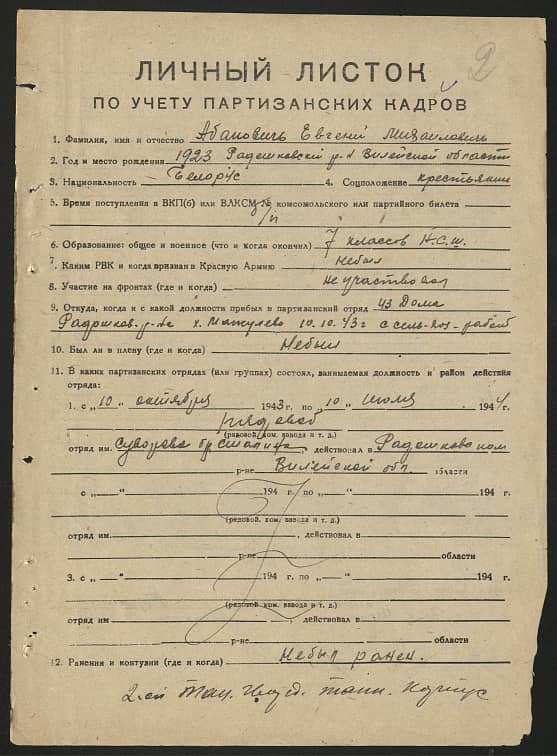 2
ЛИЧНЫЙ ЛИСТОК
ПО УЧЕТУ ПАРТИЗАНСКИХ КАДРОВ
1. Фамилия, имя и отчество Абановичь Евгений Михаиловичь
2. Год и место рождения 1923 Радешковский р-н Вилейской области
3. Национальность Белорус 4. Соцположение крестьянин
5. Время поступления в ВКП(б) или ВЛКСМ № комсомольского или партийного билета
б/п
6. Образование: общее и военное (что и когда окончил) 7 классов Н.С.Ш.
7. Каким РВК и когда призван в Красную Армию Небыл
8. Участие на фронтах (где и когда) не участвовал
9. Откуда, когда и с какой должности прибыл в партизанский отряд из Дома
х. 10.10.43 г с сель-хоз-работ
10. Был ли в плену (где и когда) Небыл
11. В каких партизанских отрядах (или группах) состоял, занимаемая должность и район действия
отряда:
1. с „10" октября 1943 г. по „10" июля 1944 г.
рядовой
(рядовой, ком. взвода и т. д.)
отряд им. Суворова бр Сталина, действовал в Радешковском
р-не Вилейской обл. области
с „ — " 194 г. по „ — " 194 г.
(рядовой, ком. взвода и т. д.)
отряд им. , действовал в
р-не области
3. с „ — " 194 г. по „ — " 194 г.
(рядовой, ком. взвода и т. д.)
отряд им , действовал в
р-не области
12. Ранения и контузии (где и когда) Небыл ранен.
2-ой Тац. Гвард. танк. Корпус